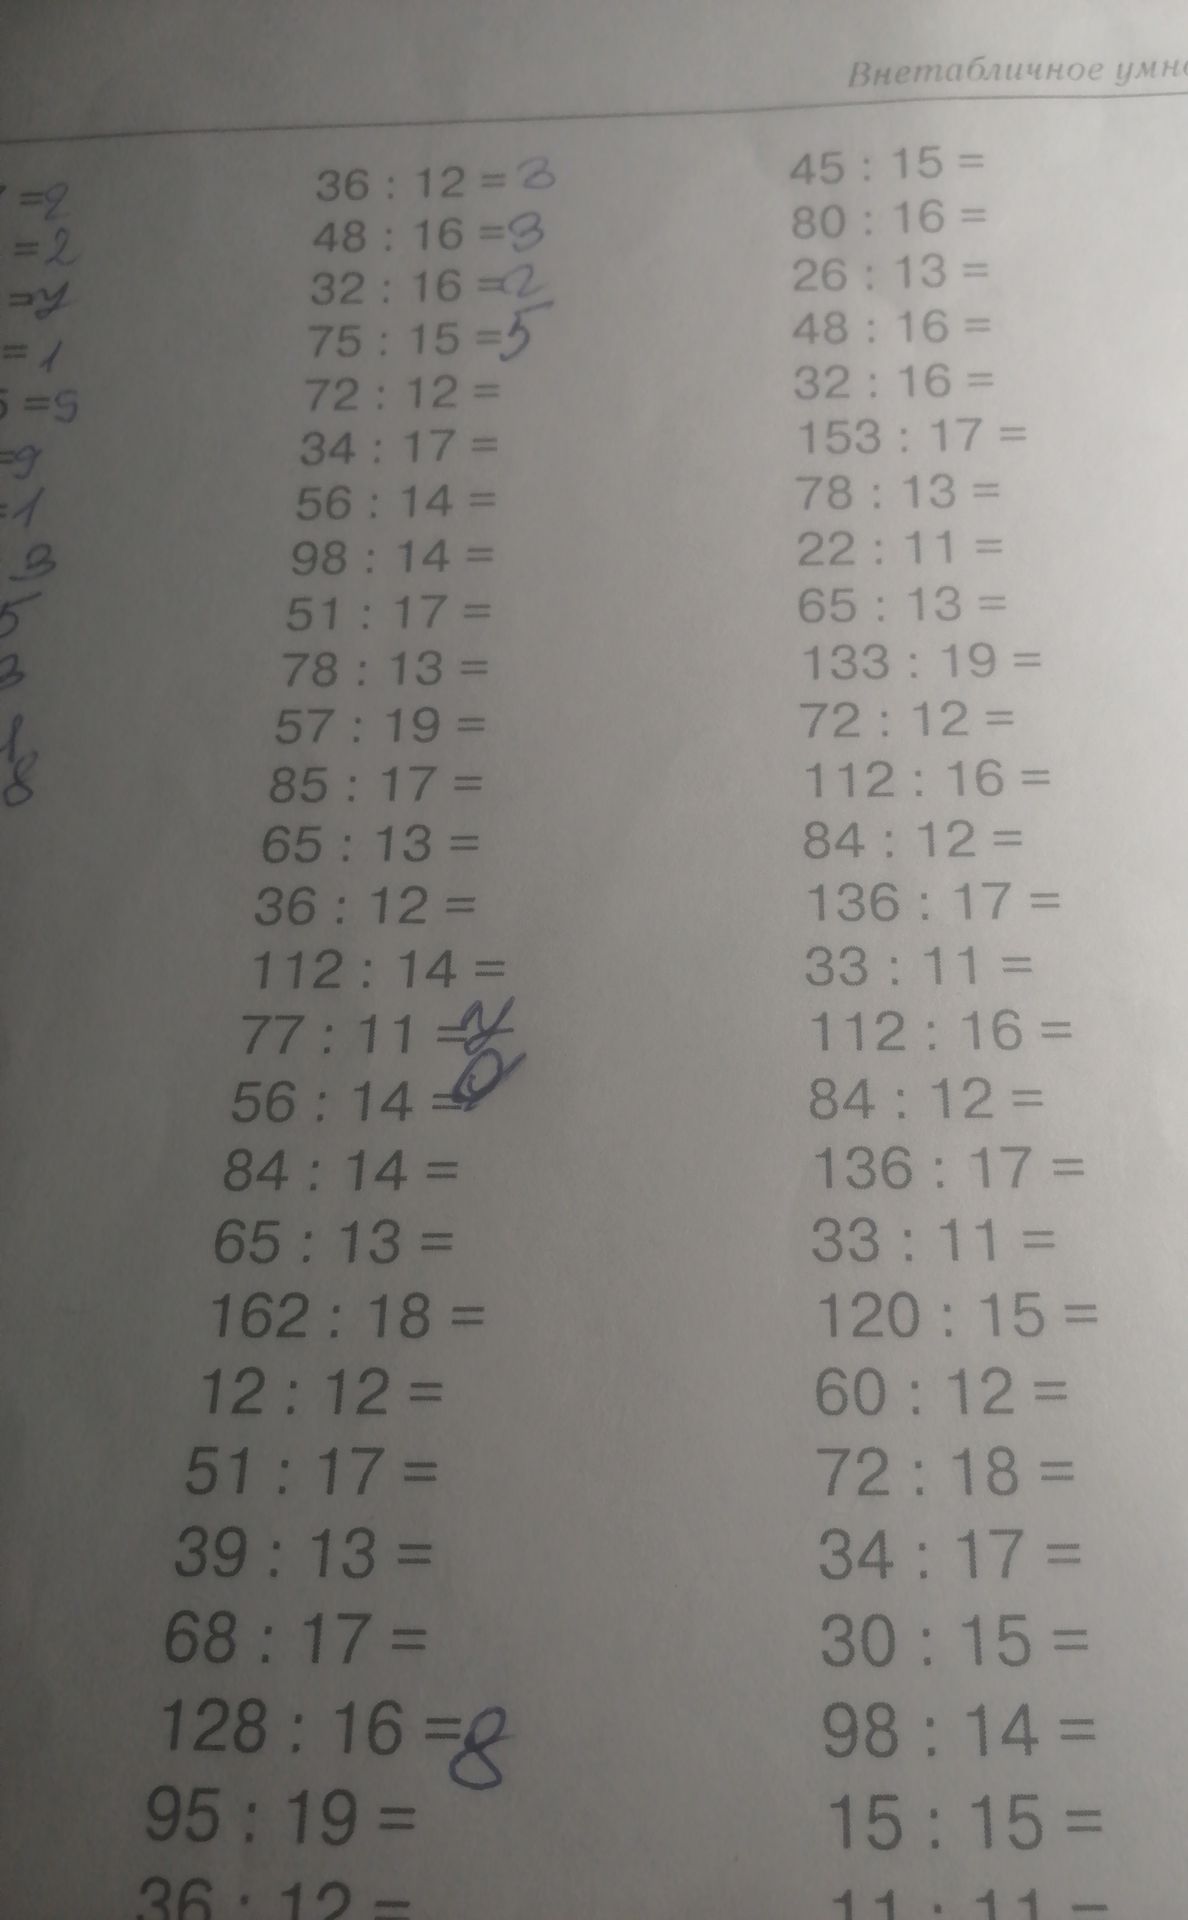 Внетабличное
=2
=2
=7
=1
=5
=9
=1
3
5
3
1
8
36 : 12 = 3
48 : 16 = 3
32 : 16 = 2
75 : 15 = 5
72 : 12 =
34 : 17 =
56 : 14 =
98 : 14 =
51 : 17 =
78 : 13 =
57 : 19 =
85 : 17 =
65 : 13 =
36 : 12 =
112 : 14 =
77 : 11 = 7
56 : 14 =
84 : 14 =
65 : 13 =
162 : 18 =
12 : 12 =
51 : 17 =
39 : 13 =
68 : 17 =
128 : 16 = 8
95 : 19 =
36 : 12 =
45 : 15 =
80 : 16 =
26 : 13 =
48 : 16 =
32 : 16 =
153 : 17 =
78 : 13 =
22 : 11 =
65 : 13 =
133 : 19 =
72 : 12 =
112 : 16 =
84 : 12 =
136 : 17 =
33 : 11 =
112 : 16 =
84 : 12 =
136 : 17 =
33 : 11 =
120 : 15 =
60 : 12 =
72 : 18 =
34 : 17 =
30 : 15 =
98 : 14 =
15 : 15 =
11 : 11 =